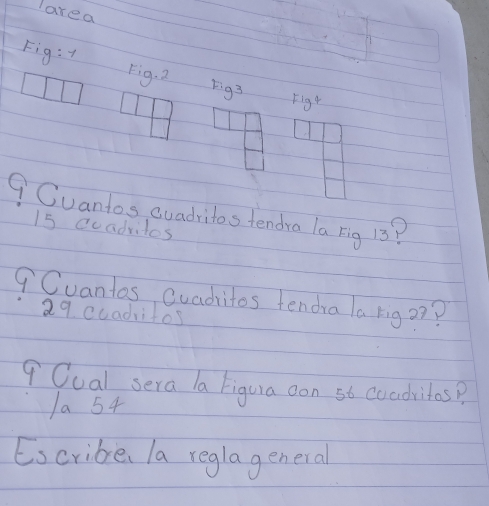 Tarea
Fig: 1 Fig. 2 Fig 3 Fig 4
¿ Cuantos cuadritos tendra la Fig 13?
15 cuadritos
¿ Cuantos cuadritos tendra la Fig 27?
29 cuadritos
¿ Cual sera la Figura con 56 cuadritos?
la 54
Escribe la regla general